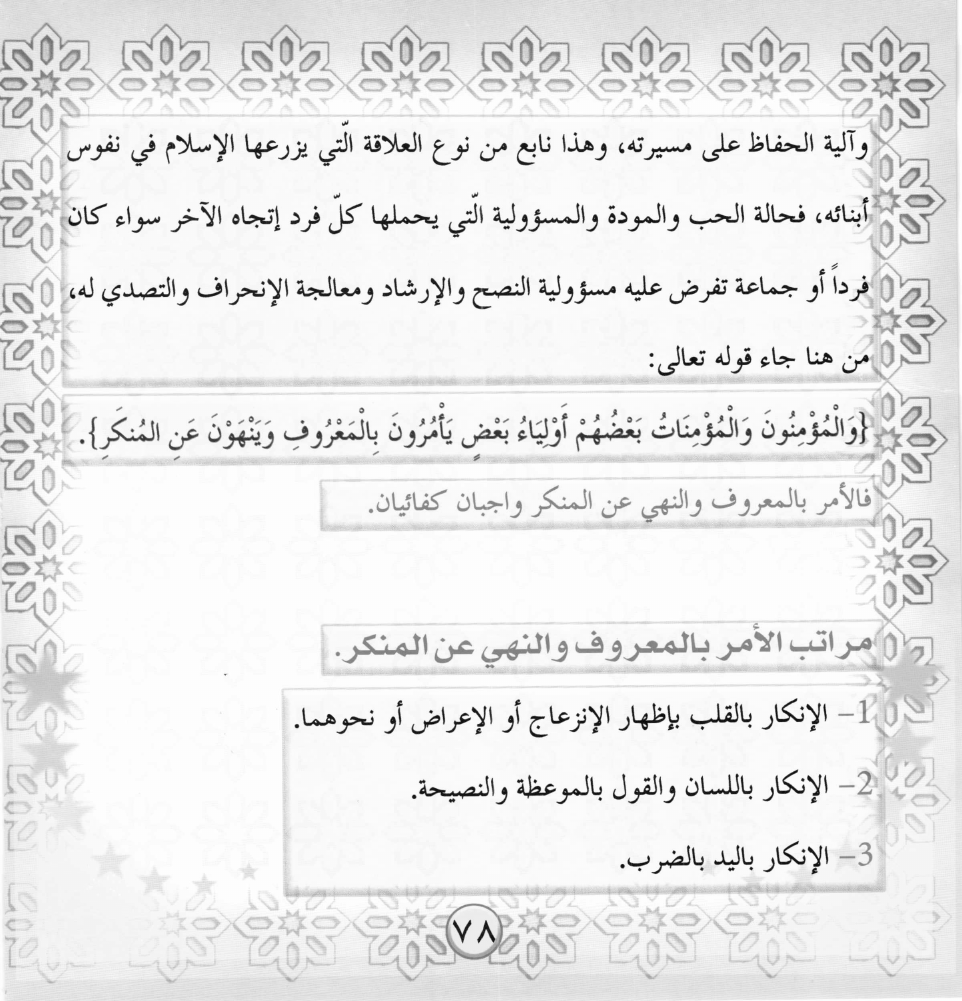 وآلية الحفاظ على مسيرته، وهذا نابع من نوع العلاقة الّتي يزرعها الإسلام في نفوس
أبنائه، فحالة الحب والمودة والمسؤولية الّتي يحملها كلّ فرد إتجاه الآخر سواء كان
فرداً أو جماعة تفرض عليه مسؤولية النصح والإرشاد ومعالجة الإنحراف والتصدي له،
من هنا جاء قوله تعالى:
{وَالْمُؤْمِنُونَ وَالْمُؤْمِنَاتُ بَعْضُهُمْ أَوْلِيَاءُ بَعْضٍ يَأْمُرُونَ بِالْمَعْرُوفِ وَيَنْهَوْنَ عَنِ المُنكَرِ}.
فالأمر بالمعروف والنهي عن المنكر واجبان كفائيان.
مراتب الأمر بالمعروف والنهي عن المنكر.
1- الإنكار بالقلب بإظهار الإنزعاج أو الإعراض أو نحوهما.
2- الإنكار باللسان والقول بالموعظة والنصيحة.
3- الإنكار باليد بالضرب.
٧٨